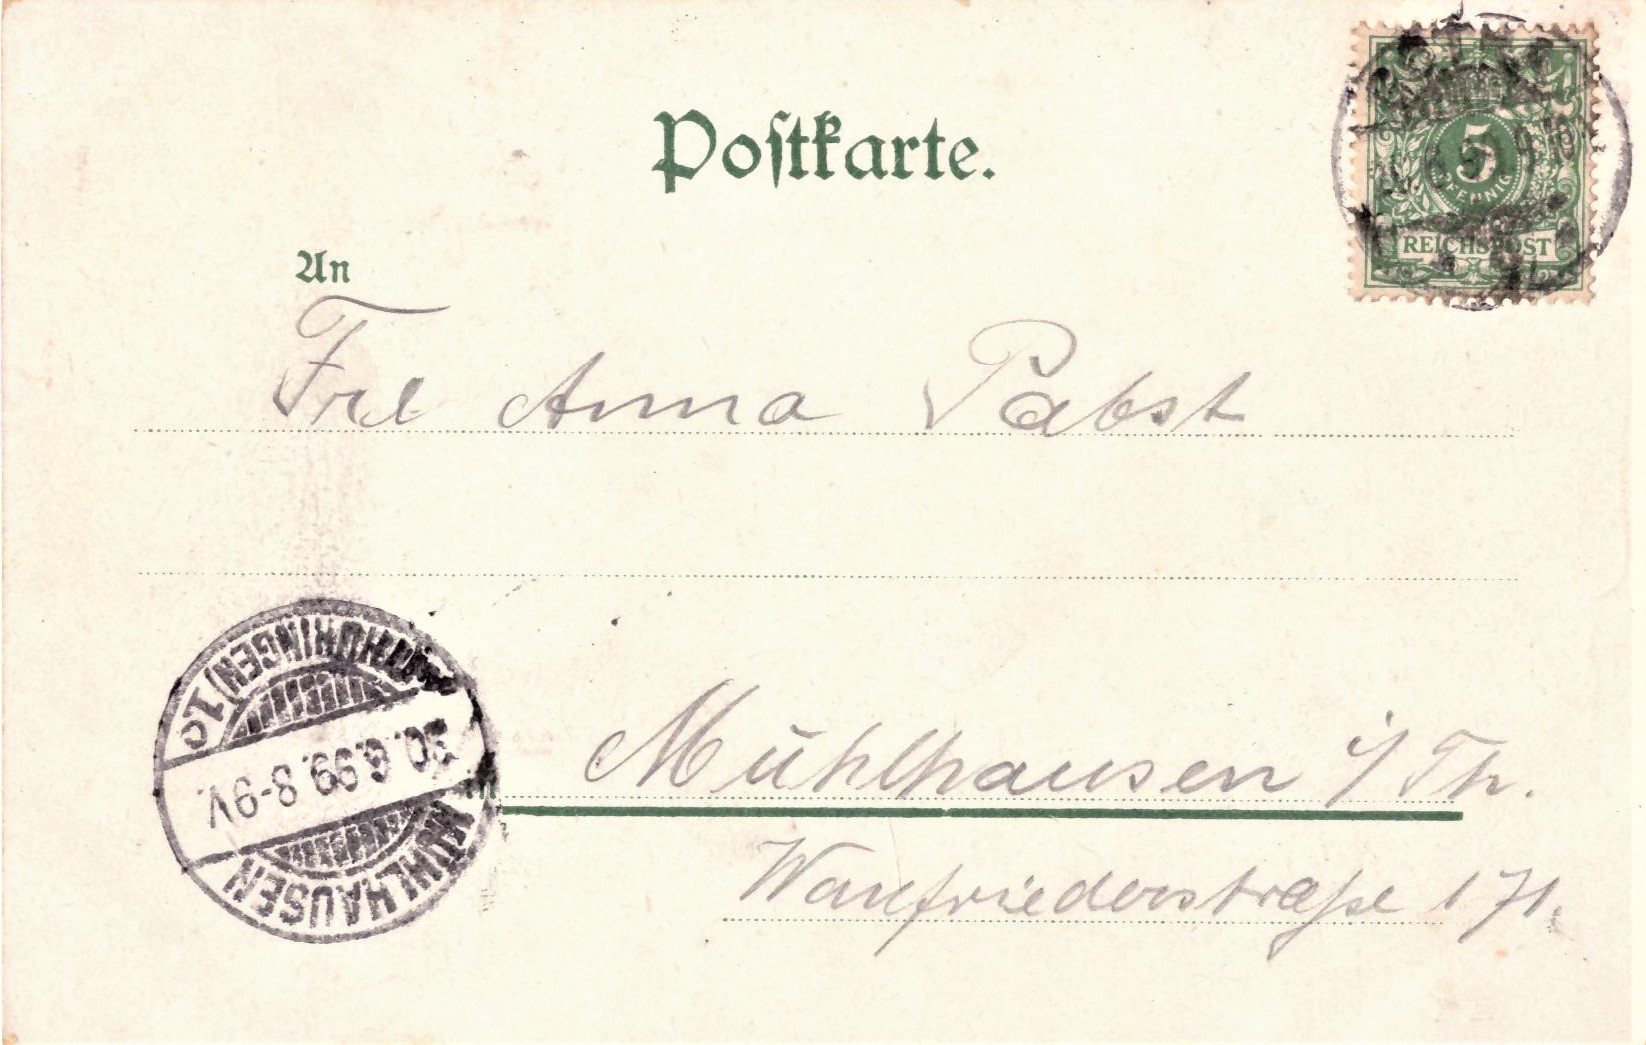 Postkarte.
5
PFENNIG
REICHSPOST
An
Frl Anna Pabst
in
Mühlhausen i/Th.
Wanfriederstraße 171.
MÜHLHAUSEN
30.6.99. 8-9V.
(THÜRINGEN) 1c